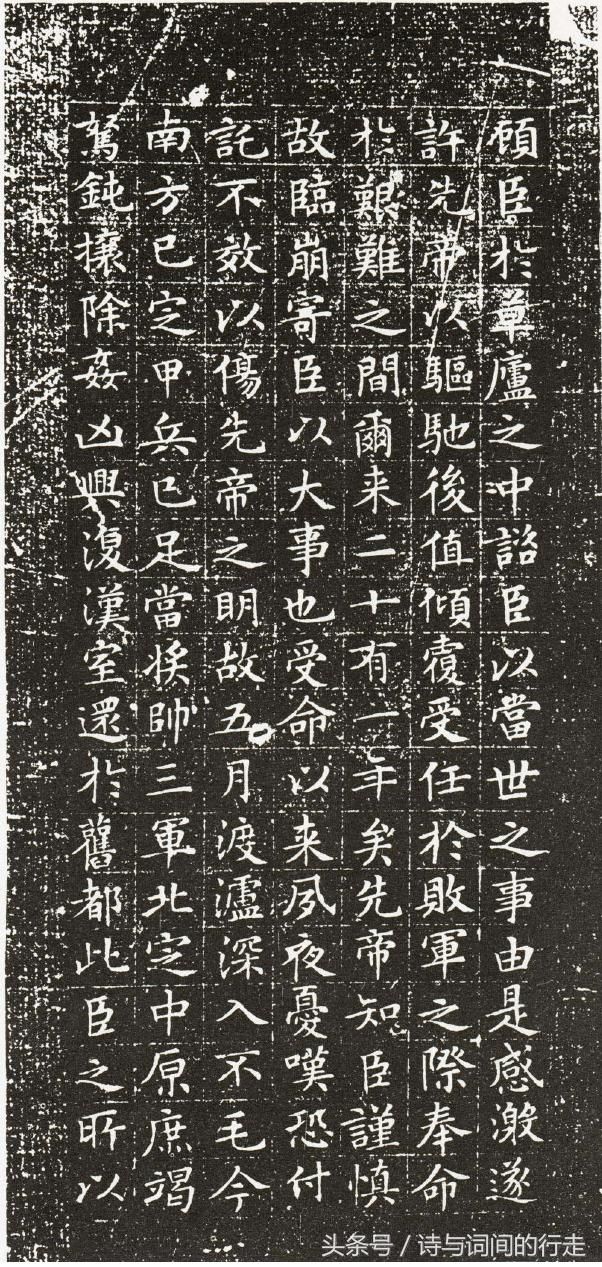 顧臣於草廬之中諮臣以當世之事由是感激遂
許先帝以驅馳後值傾覆受任於敗軍之際奉命
於艱難之間爾来二十有一年矣先帝知臣謹慎
故臨崩寄臣以大事也受命以来夙夜憂嘆恐付
託不效以傷先帝之明故五月渡瀘深入不毛今
南方已定甲兵已足當將帥三軍北定中原庶竭
駑鈍攘除姦凶興復漢室還於舊都此臣之所以
头条号 / 诗与词间的行走